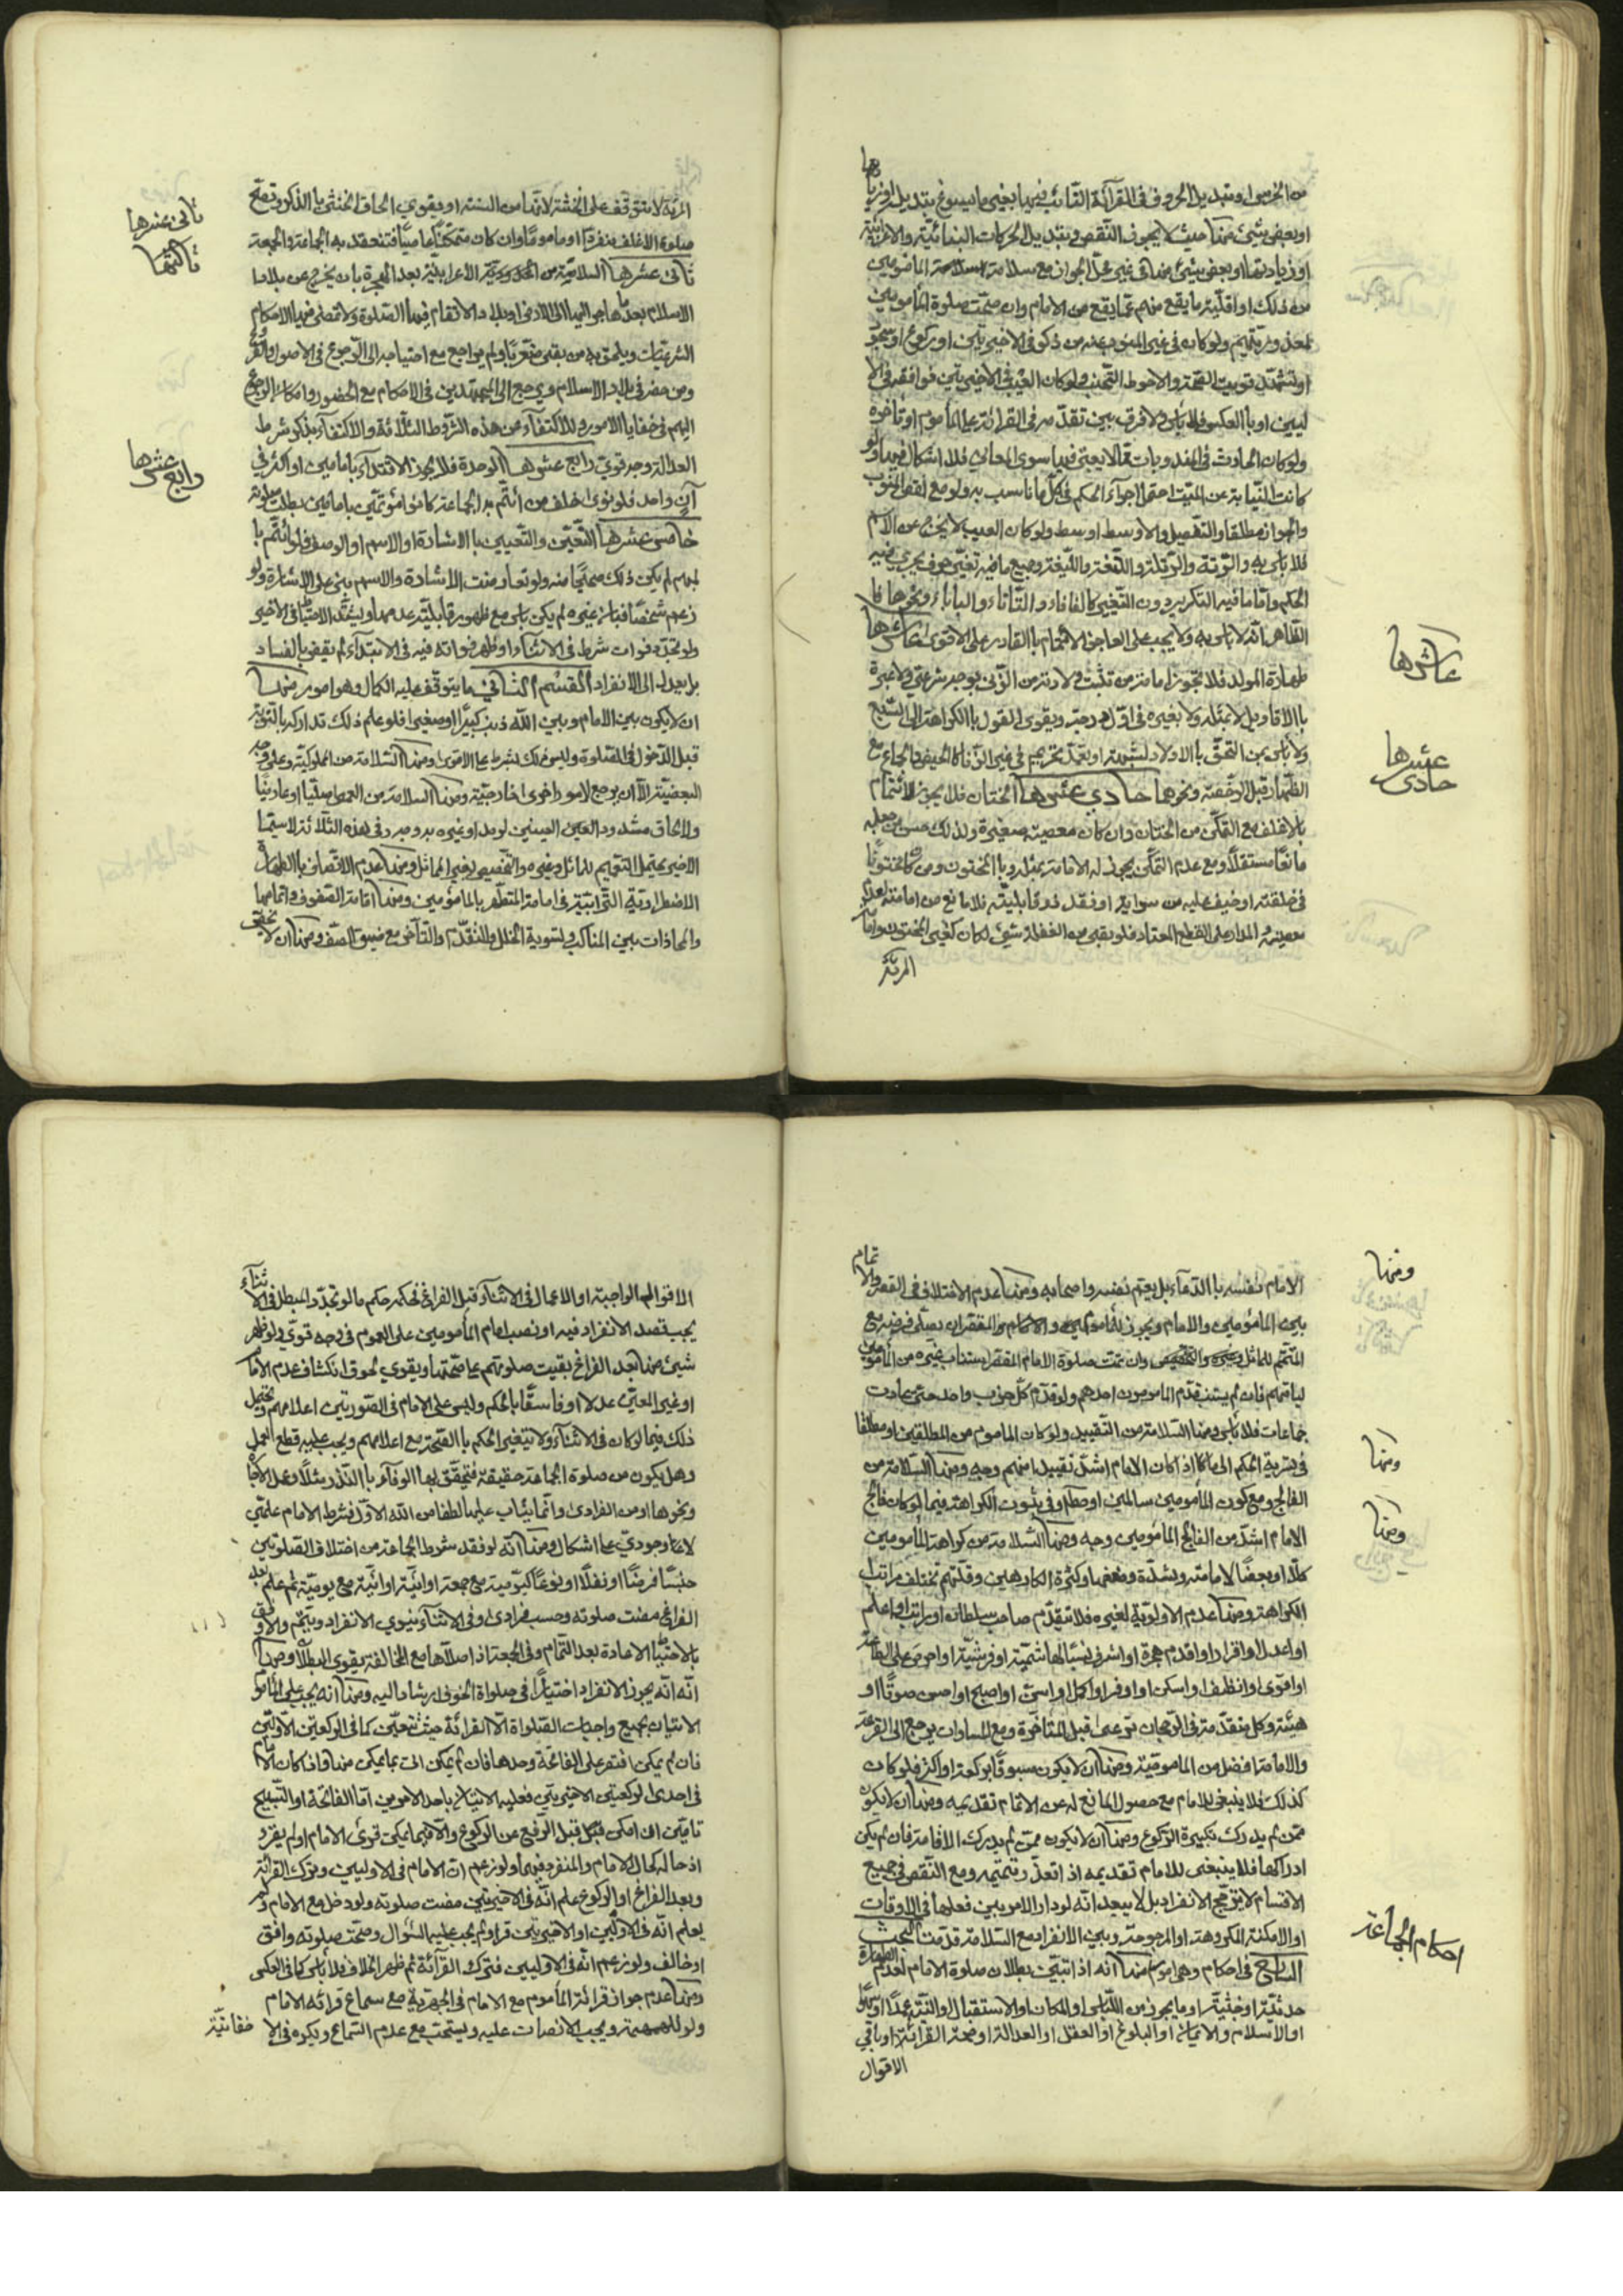 من الخرس او تبديل الحروف في القرآئة الثائب فيها بغيرها يسوغ تبديل او زيادتها
او بعض شيئ منها حيث لا يجوز النقص و تبديل الحركات البنائيّة والاعرابيّة
او زيادتها او بعض شيئ منها في غير محلّ الجواز مع سلامة المأمومين
من ذلك او اقلّية ما يقع منهم عمّا يقع من الامام وان صحّت صلوة المأمومين
ولو كان في غير المنوب عنه من ذكر في الاخيرتين او ركوع او سجود
او تشهّد قويت الصّحة والاحوط التجنّب ولو كان العيب في الاخيرتين فوافقه في الاو
ليين او بالعكس فلا بأس ولا فرق بين تقدّمه في القرائة على المأموم او تأخره
ولو كان الحادث في
كانت النّيابة عن الميّت احتمل اجرآء الحكم في كلّ ما ناسب به ولو مع نقص المنوب
والجواز مطلقا والتفصيل والاوسط اوسط ولو كان العيب لا يخرج عن الاسم
فلا باس به والرّتة والرّتلة واللّثغة واللّيغة وجميع ما فيه تغيير حرف يجري فيه
الحكم وامّا ما فيه التكرير دون التّغيير كالفافاء والتّاتاء والباباء ونحوها فا
الظّاهر انّه لا باس به ولا يجب على العاجز الائتمام بالقادر على الاقوى عاشرها
طهارة المولد فلا تجوز امامة من تثبت ولادته من الزّنى بوجه شرعيّ ولا عبرة
بالاقاويل لا بمثله ولا بغيره في اوّل درجة ويقوى القول بالكراهة الى السّبع
ولا باس بمن التحق بالاولاد لشبهة او تعمّد تحريم في غير الزّنا كالحيض والجماع مع
الظّهار قبل الرّخصة ونحوهما حادي عشرها الختان فلا يجوز الائتمام
بالاغلف مع التمكّن من الختان وان كان معصية صغيرة ولذلك حسن جعله
مانعا مستقلّا ومع عدم التمكّن يجوز له الامامة بمثله وبالمختون ومن كان مختونًا
في خلقته او خيف عليه من سراية او فقد قابليّة فلا مانع من امامته لعدم
معصيته والمدار على القطع المعتاد فلو بقي من الغفلة شيئ كان كغير المختون وامّا
المرئة
عاشرها
حادي عشرها
المرئة لا يتوقف على الخفشة لانّها من السّنّة او يقوي الحاق الخنثى بالذكر وتصحّ
صلوة الاغلف منفردًا او ماموما وان كان متمكنًا عاصيًا فتنعقد به الجماعة والجمعة
ثاني عشرها السلامة من الاعرابيّة بعد الهجرة بان يخرج عن بلاد
الاسلام بعد ما هاجر اليها الى بلاد لا تقام فيها الصّلوة ولا تصل فيها الاحكام
الشرعيّات ويلحق به من بقي متعرّبًا ولم يهاجر مع احتياجه الى الرّجوع في الاصول والفروع
ومن حضر في بلاد الاسلام ويرجع الى المجتهدين في الاحكام مع الحضور وامكان الرجوع
اليهم في خفايا الامور وللاكتفآء من هذه الشروط الثلاثة والاكتفآء بذكر شرط
العدالة وجه قويّ رابع عشرها الوحدة فلا يجوز الاقتدآء بامامين او اكثر في
آن واحد فلو نوى خلف من ائتمّ به الجماعة كانوا مؤتمّين بامامين بطلت صلوته
خامس عشرها التّعيّن والتّعيين بالاشارة او الاسم او الوصف فلو ائتمّ با
لمبهم لم يكن ذلك صحيحًا منه ولو تعارضت الاشارة والاسم بنى على الاشارة ولو
زعم شخصًا فبان غيره لم يكن باس مع ظهور قابليّة عند هما ويشتدّ الاحتياط في الاخير
ولو تجدّد فوات شرط في الاثنآء او ظهر فواته فيه في الابتدآء لم يقض بالفساد
بل يعدل الى الانفراد القسم الثاني ما يتوقّف عليه الكمال وهو امور منها
ان لا يكون بين الامام وبين اللّه ذنب كبيرًا او صغيرا فلو علم ذلك تداركه بالتّوبة
قبل الدّخول في الصّلوة وليس ذلك بشرط على الاقوى ومنها السّلامة من المملوكيّة وعلى وجه
البعضيّة الّا ان يرجّح لامور اخرى خارجيّة ومنها السلامة من العمى اصليّا او عارضيّا
والحاق مشدود العين العينين لرمد او غيره به وجه وفي هذه الثّلاثة لا سيّما
الاخير يحتمل التعميم للماثل وغيره والتّخصيص بغير المماثل ومنها عدم الاتّصاف بالطّهارة
الاضطراريّة التّرابيّة في امامة المتطهّر بالمأمومين ومنها اقامة الصّفوف واتمامها
والمحاذات بين المناكب وتسوية الخلل والتقدّم والتأخّر مع ضيق الصّف ومنها ان لا يخصّ
ثاني عشرها
ثالثها
رابع عشرها
الامام نفسه بالدّعآء بل يعمّم نفسه واصحابه ومنها عدم الاختلاف في القصر والاتمام
بين المأمومين والامام ويجوز للمأمومين والامام والمقصّر ان يصلّي فرضه مع
المتمّم للماثل وغيره والتّخصيص وان تمّت صلوة الامام المقصّر استناب غيره من المأمومين
ليامّهم فان لم يستنب قدّم المامومون احدهم ولو قدّم كلّ حزب واحد حتّى صارت
جماعات فلا بأس ومنها السّلامة من التّقييد ولو كان الماموم من المطلقين او مطلقا
في تسرية الحكم الى ما اذا كان الامام اشدّ تقييدا منهم وجه ومنها السّلامة من
الفالج ومع كون المأمومين سالمين وفي ثبوت الكراهة فيما لو كان فالج
الامام اشدّ من الفالج المأمومين وجه ومنها السّلامة من كراهة المأمومين
كلّا او بعضًا لامامته وبشدّة وضعفها وكثرة الكارهين وقلّتهم تختلف مراتب
الكراهة ومنها عدم الاولويّة لغيره فلا يتقدّم صاحب سلطانه او راتب او اعلم
او اعدل او اقرء او اقدم هجرة او اشرف نسبًا او قرشيّة او احرص على الطّاعة
او اقوى او انظف او اسكن او اوفر او اكمل او اسنّ او اصبح او احسن صوتًا او
هيئة وكل متقدّمة في الرّجحان ترعى قبل المتأخّرة ومع المساوات يرجع الى القرعة
والامامة افضل من الماموميّة ومنها ان لا يكون مسبوقًا بركعة او اكثر فلو كان
كذلك فلا ينبغي للامام مع حصول المانع له عن الاتمام تقديمه ومنها ان لا يكون
ممّن لم يدرك تكبيرة الرّكوع ومنها ان لا يكون ممّن لم يدرك الاقامة فان لم يكن
ادراكها فلا ينبغي للامام تقديمه اذا تعذّر تتميمه ومع النّقص في جميع
الاقسام لا يترجّح الانفراد بل لا يبعد انّه لو دار الامر بين فعلها في الاوقات
او الامكنة المكروهة او المرجوحة وبين الانفراد مع السّلامة قدّمت البحث
السابع في احكام وهي امور منها انه اذا تبيّن بطلان صلوة الامام لعدم الطهارة
حدثيّة او خبثيّة او ما يجوز من اللّباس او المكان او الاستقبال والنّيّة عمدًا او سهوًا
او الاسلام والايمان او البلوغ او العقل او العدالة او صحّة القرائة او باقي
الاقوال
ومنها
ومنها
ومنها
احكام الجماعة
الاقوال الواجبة او الاعمال في الاثنآء قبل الفراغ فحكمه حكم ما لو تجدّد المبطل في الاثنآء
يجب قصد الانفراد فيه او نصب امام المأمومين على العموم في وجه قويّ ولو ظهر
شيئ منها بعد الفراغ بقيت صلوتهم على صحّتها ويقوي لحوق انكشاف عدم الامام
او غير المعيّن عدلا او فاسقًا بالحكم وليس على الامام في الصّورتين اعلامهم ويحتمل
ذلك فيما لو كان في الاثنآء ولا يتغير الحكم بالصّحّة مع اعلامهم ويجب عليه قطع العمل
وهل يكون من صلوة الجماعة حقيقة فتحقّق بها الوفآء بالنّذر مثلا وعدل الامام
ونحوها او من الفرادى وانّما يثاب عليها لطفا من اللّه الاوّل فشرط الامام علميّ
لا وجوديّ على اشكال ومنها انّه لو فقد شرط الجماعة من اختلاف الصّلوتين
جنسًا فرضًا او نفلًا او نوعًا كيوميّة مع جمعة او آتيّة مع يوميّة ثم علم بعد
الفراغ مضت صلوته وحسب فرادى وفي الاثنآء ينوي الانفراد ويتمّ والاوفق
بالاحتياط الاعادة بعد التّمام وفي الجمعة اذا صلّاها مع المخالفة يقوى البطلان ومنها
انّه يجوز الانفراد اختيارًا في صلواة الخوف اريشاد اليه ومنها انه يجب على المأموم
الاتيان بجميع واجبات الصّلواة الّا القرائة حيث تتعيّن كما في الرّكعتين الأوليّين
فان لم يمكن اقتصر على الفاتحة وحدها فان لم يمكن اتى بما يمكن منها واذا كان الامام
في احدى الركعتين الاخيرتين فعليه الاتيان باحد الامرين امّا الفاتحة او التّسبيح
تامّين ان امكن قبل الرّفع عن الركوع والّا فبما يمكن نوى الامام او لم يقرء
اذ حاله كحال الامام والمنفرد فيها ولو زعم انّ الامام في الاوليين وترك القرائة
وبعد الفراغ او الركوع علم انّه في الاخيرتين مضت صلوته ولو دخل مع الامام ولم
يعلم انّه في الاوليين او الاخيرتين قرء ولم يجب عليه السّؤال وصحّت صلوته وافق
او خالف ولو زعم انّه في الاوليين فترك القرآئة ثم ظهر الخلاف فلا بأس كما في العكس
ومنها عدم جواز قرائة المأموم مع الامام في الجهريّة مع سماع قرائة الامام
ولو للهمهمة ويجب الانصات عليه ويستحبّ مع عدم السّماع ويكره في الا
خفاتيّة